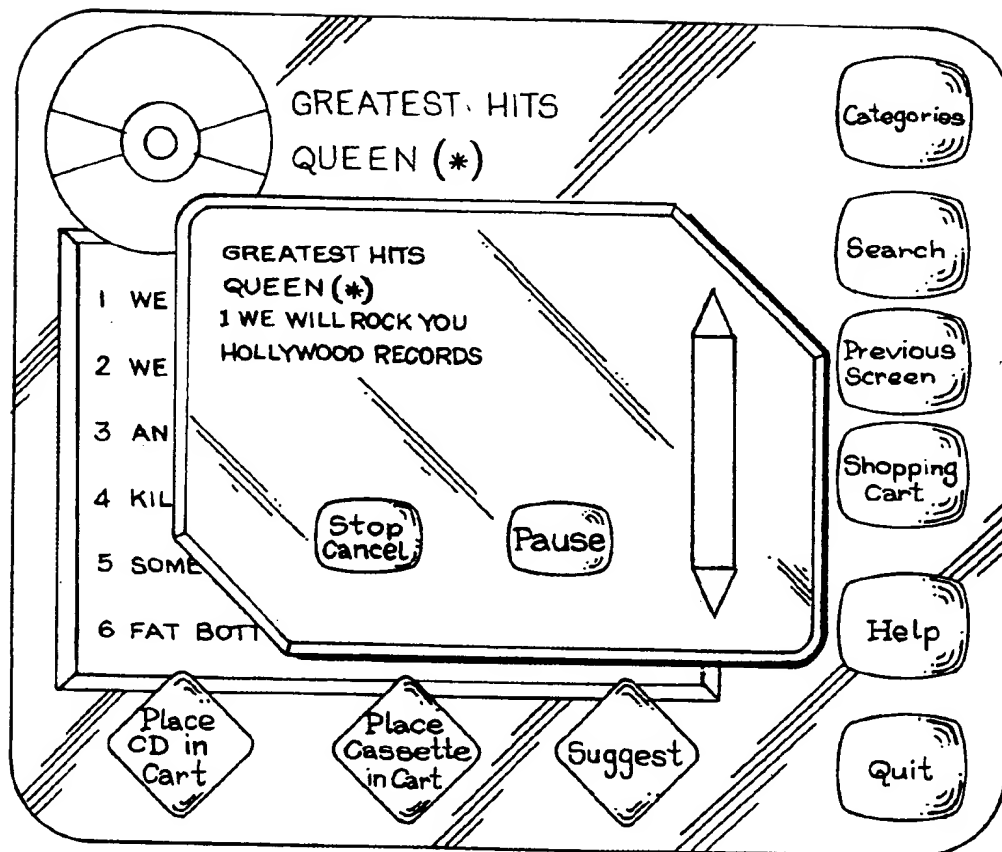 GREATEST HITS
QUEEN (*)
Categories
Search
Previous
Screen
Shopping
Cart
Help
Quit
GREATEST HITS
QUEEN (*)
1 WE WILL ROCK YOU
HOLLYWOOD RECORDS
Stop
Cancel
Pause
1 WE
2 WE
3 AN
4 KIL
5 SOME
6 FAT BOTT
Place
CD in
Cart
Place
Cassette
in Cart
Suggest